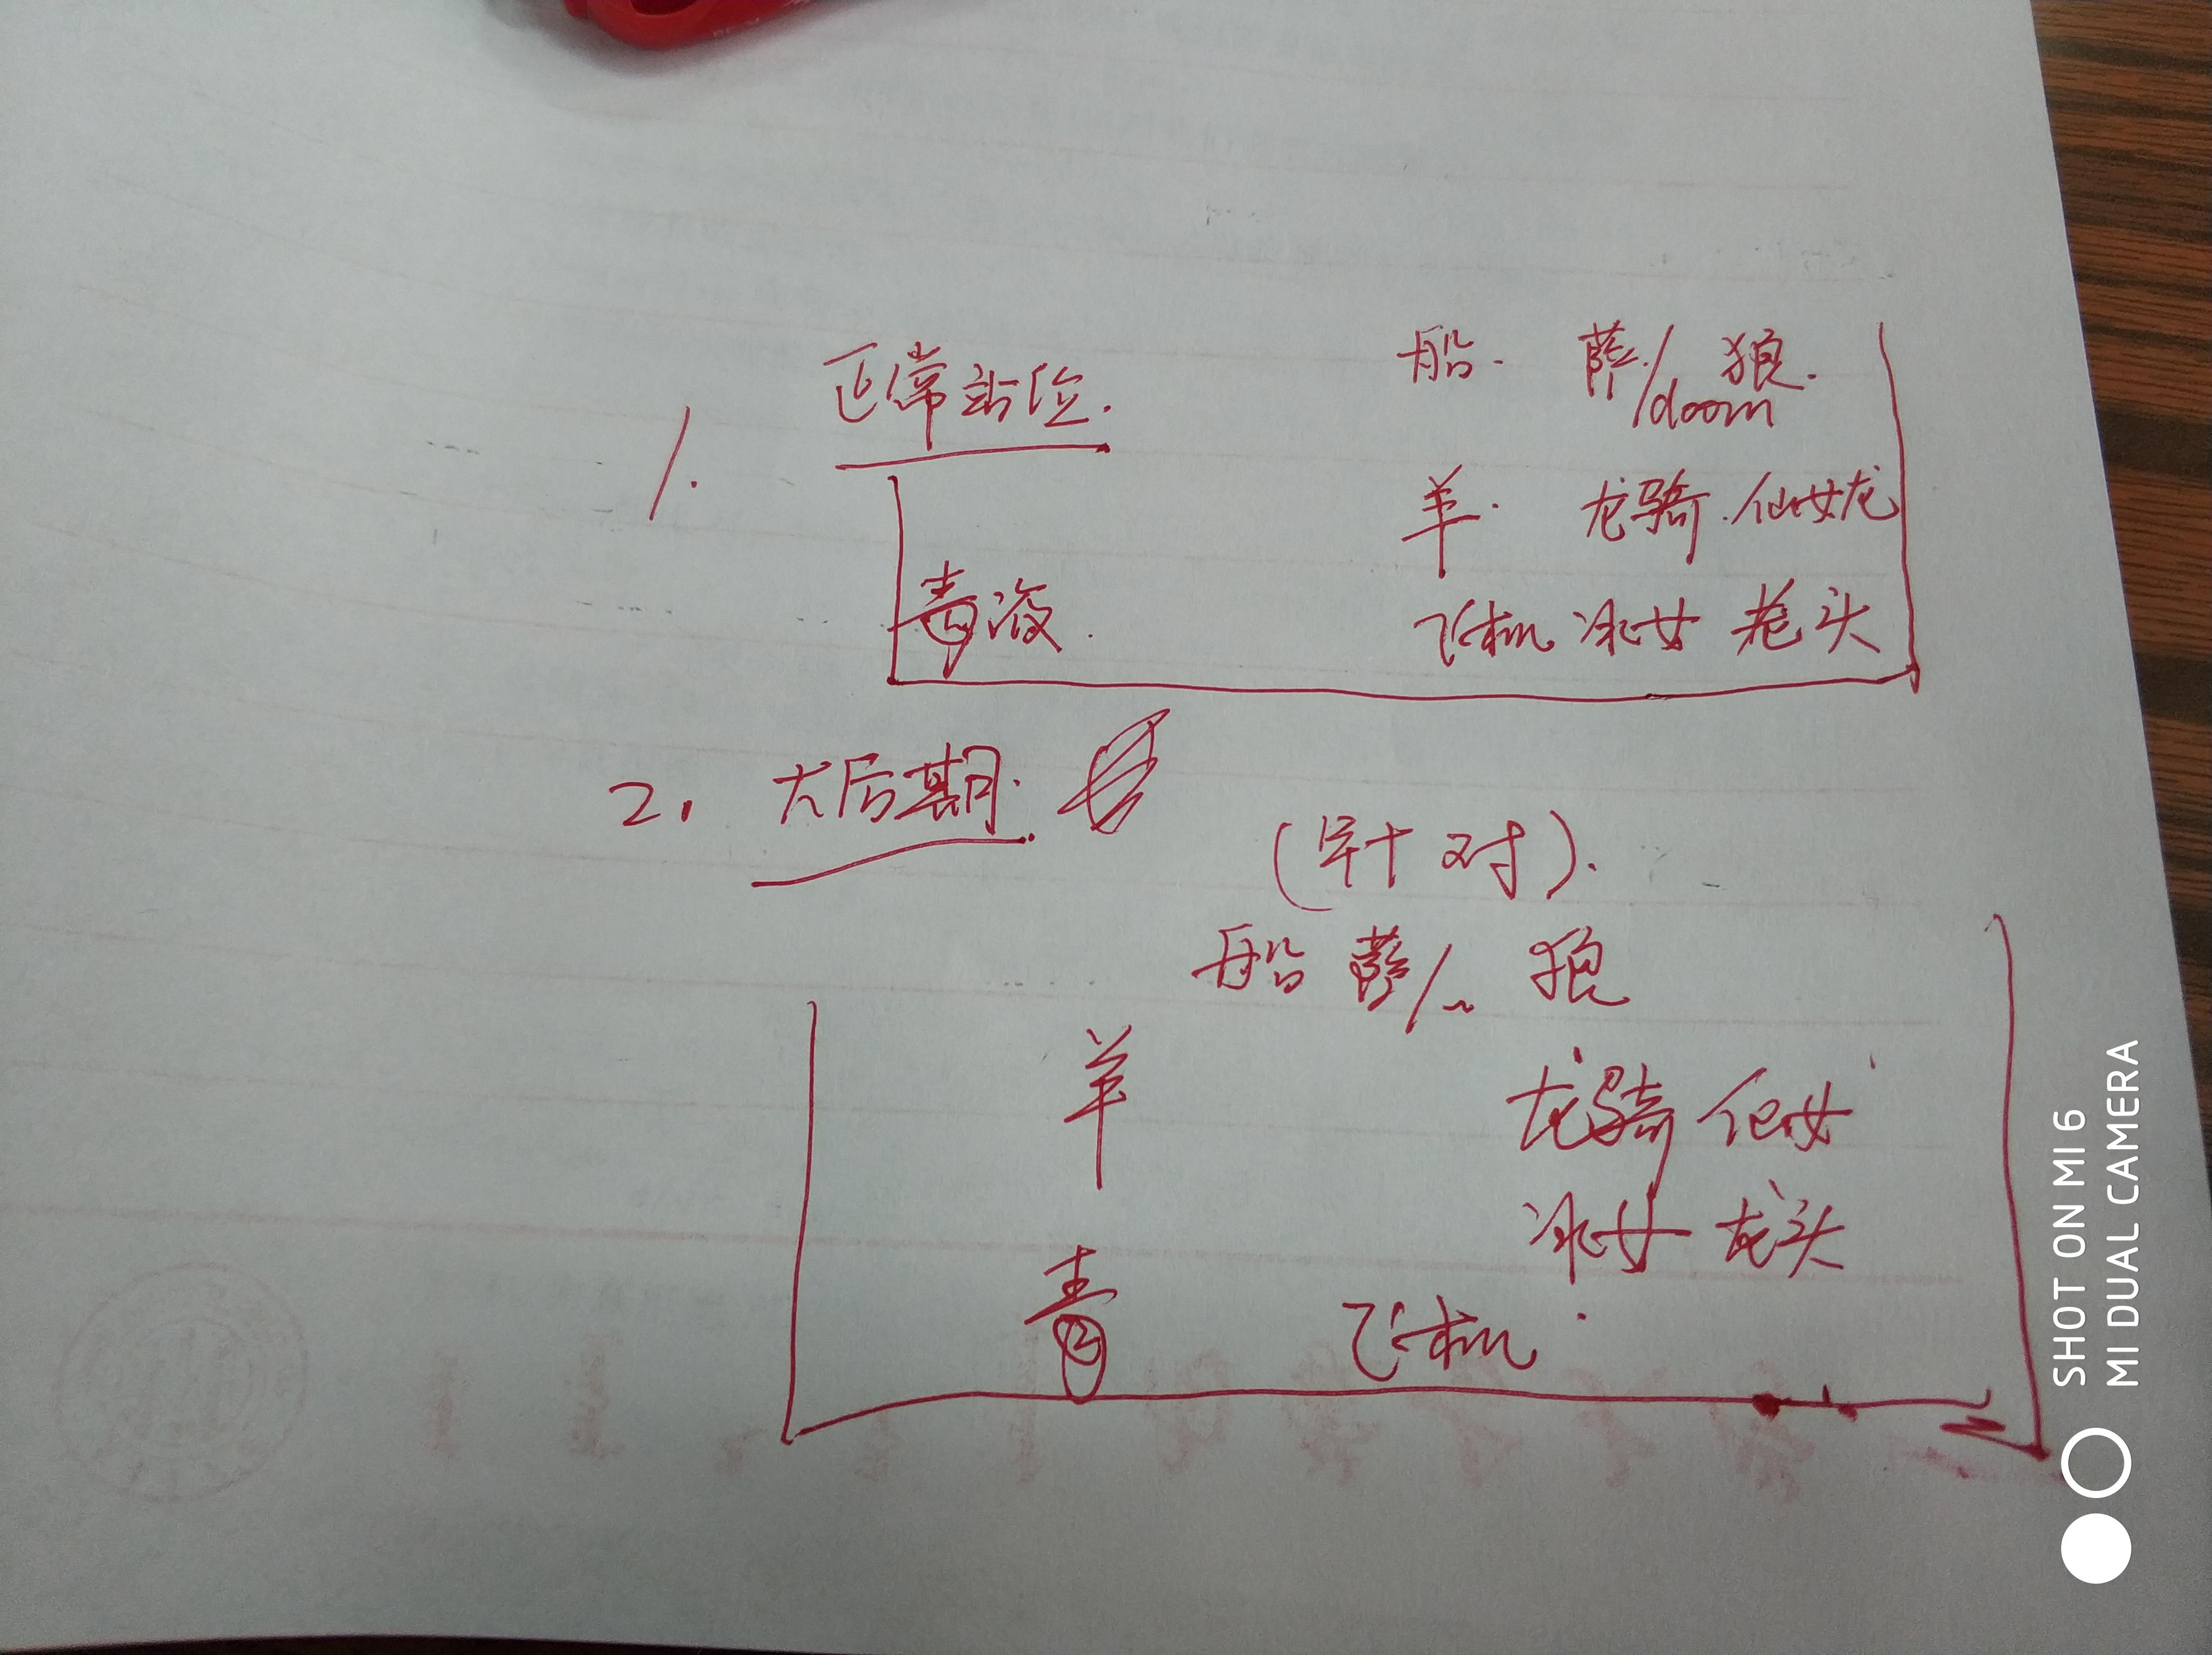 1. 正常站位.
船. 萨/doom 狼.
羊. 龙骑. 仙女龙
毒液. 飞机 冰女 老头
2. 大后期.
(针对).
船 萨/~ 狼
羊 龙骑 仙女
冰女 龙头
毒 飞机
SHOT ON MI 6
MI DUAL CAMERA